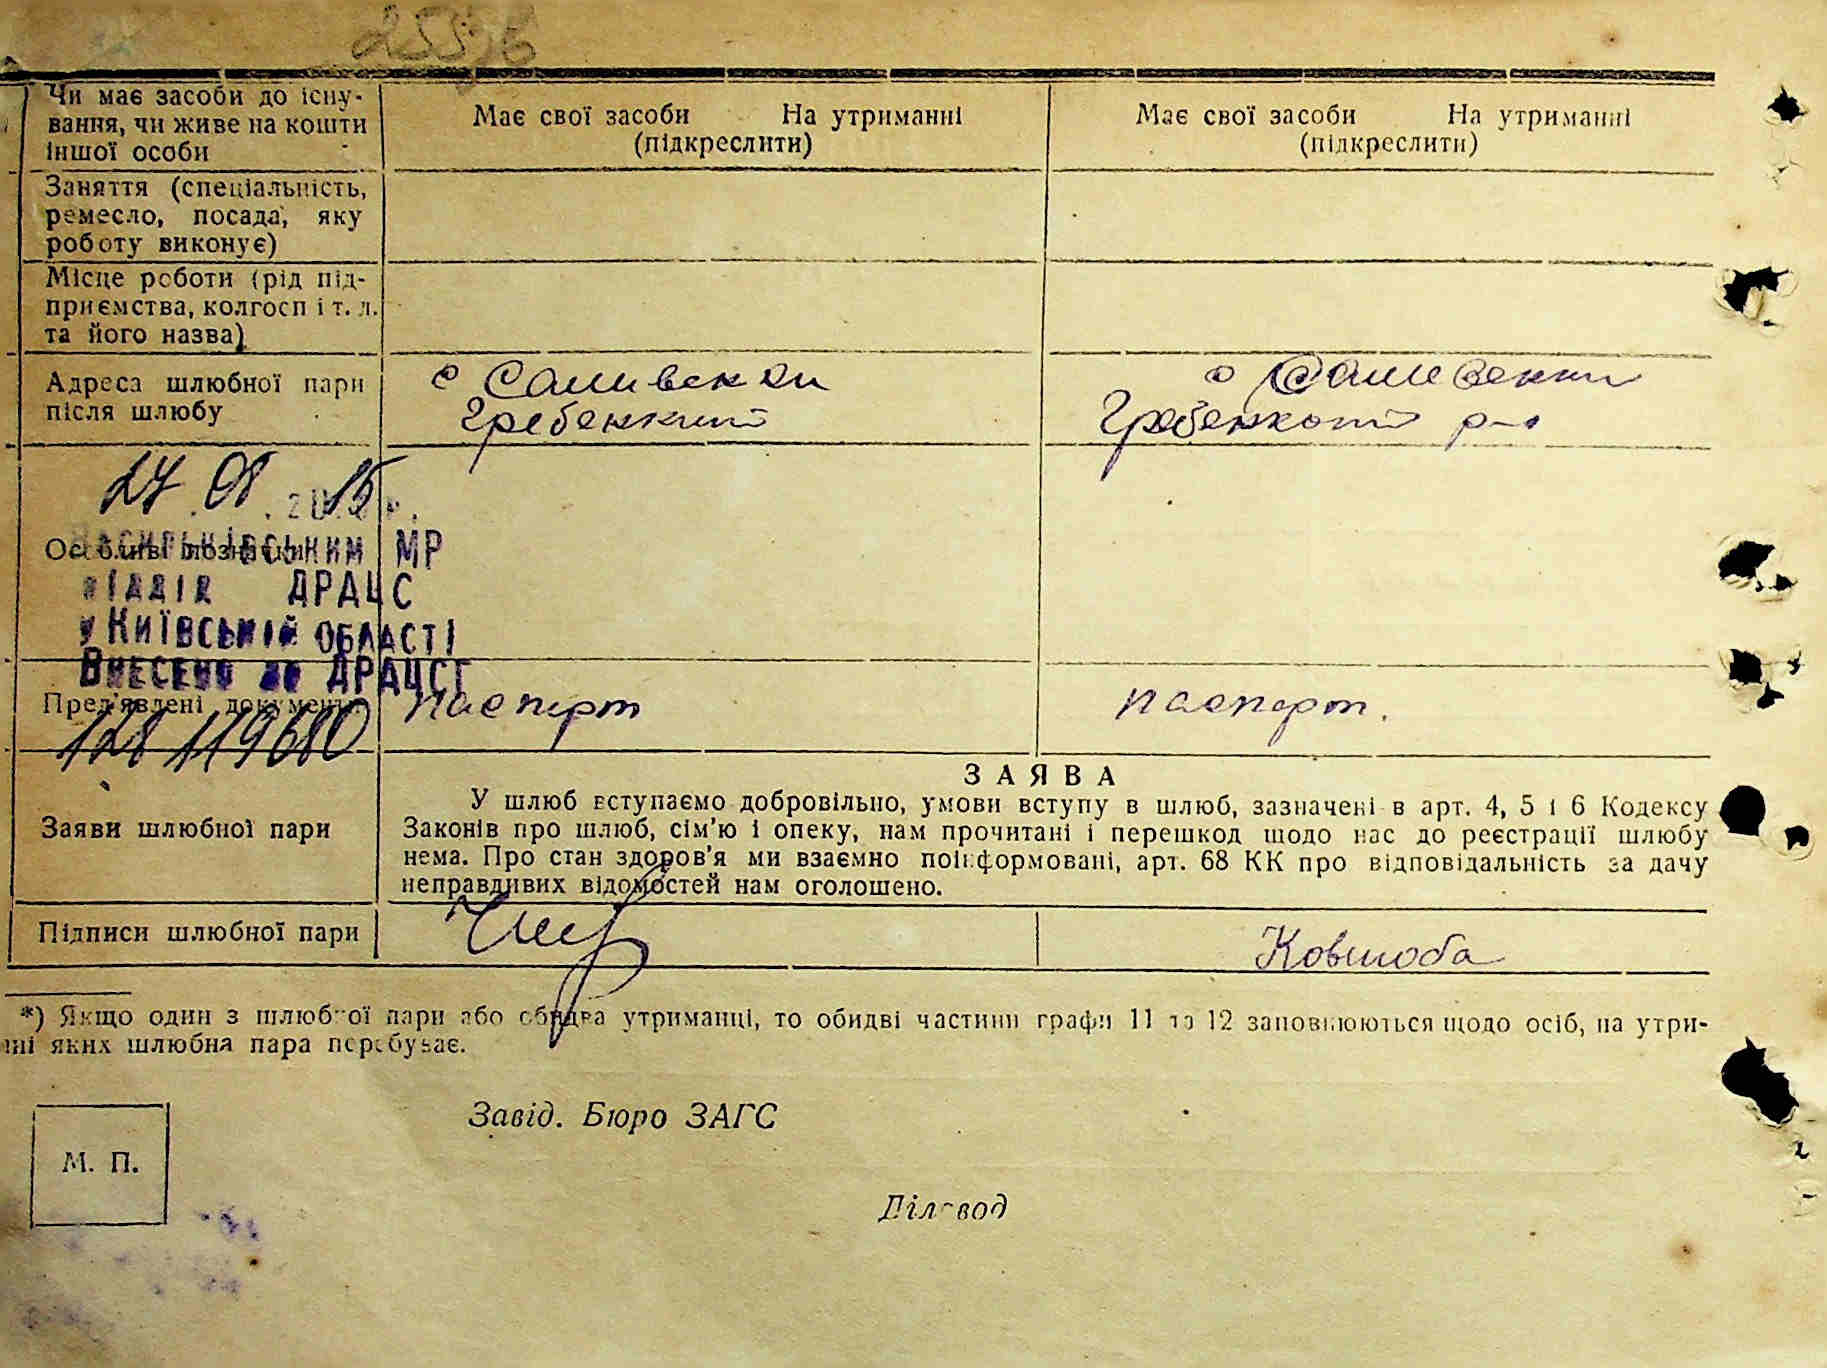 Чи має засоби до існу-
вання, чи живе на кошти
іншої особи
Має свої засоби На утриманні
(підкреслити)
Має свої засоби На утриманні
(підкреслити)
Заняття (спеціальність,
ремесло, посада, яку
роботу виконує)
Місце роботи (рід під-
приємства, колгосп і т. д.
та його назва)
Адреса шлюбної пари
після шлюбу
с Саливенки
Гребенкий
с Саливенки
Гребенкоти р-о
27 08 2015 р.
Особливі позначки
Васильківським МР
відділ ДРАЦС
у Київській області
Внесено до ДРАЦСГ
Пред'явлені документи
128 119680
паспорт
паспорт.
ЗАЯВА
Заяви шлюбної пари
У шлюб вступаємо добровільно, умови вступу в шлюб, зазначені в арт. 4, 5 і 6 Кодексу
Законів про шлюб, сім'ю і опеку, нам прочитані і перешкод щодо нас до реєстрації шлюбу
нема. Про стан здоров'я ми взаємно поінформовані, арт. 68 КК про відповідальність за дачу
неправдивих відомостей нам оголошено.
Підписи шлюбної пари
Ковшоба
*) Якщо один з шлюбної пари або обидва утриманці, то обидві частини графи 11 та 12 заповнюються щодо осіб, на утри-
ні яких шлюбна пара перебуває.
Завід. Бюро ЗАГС
М. П.
Діловод